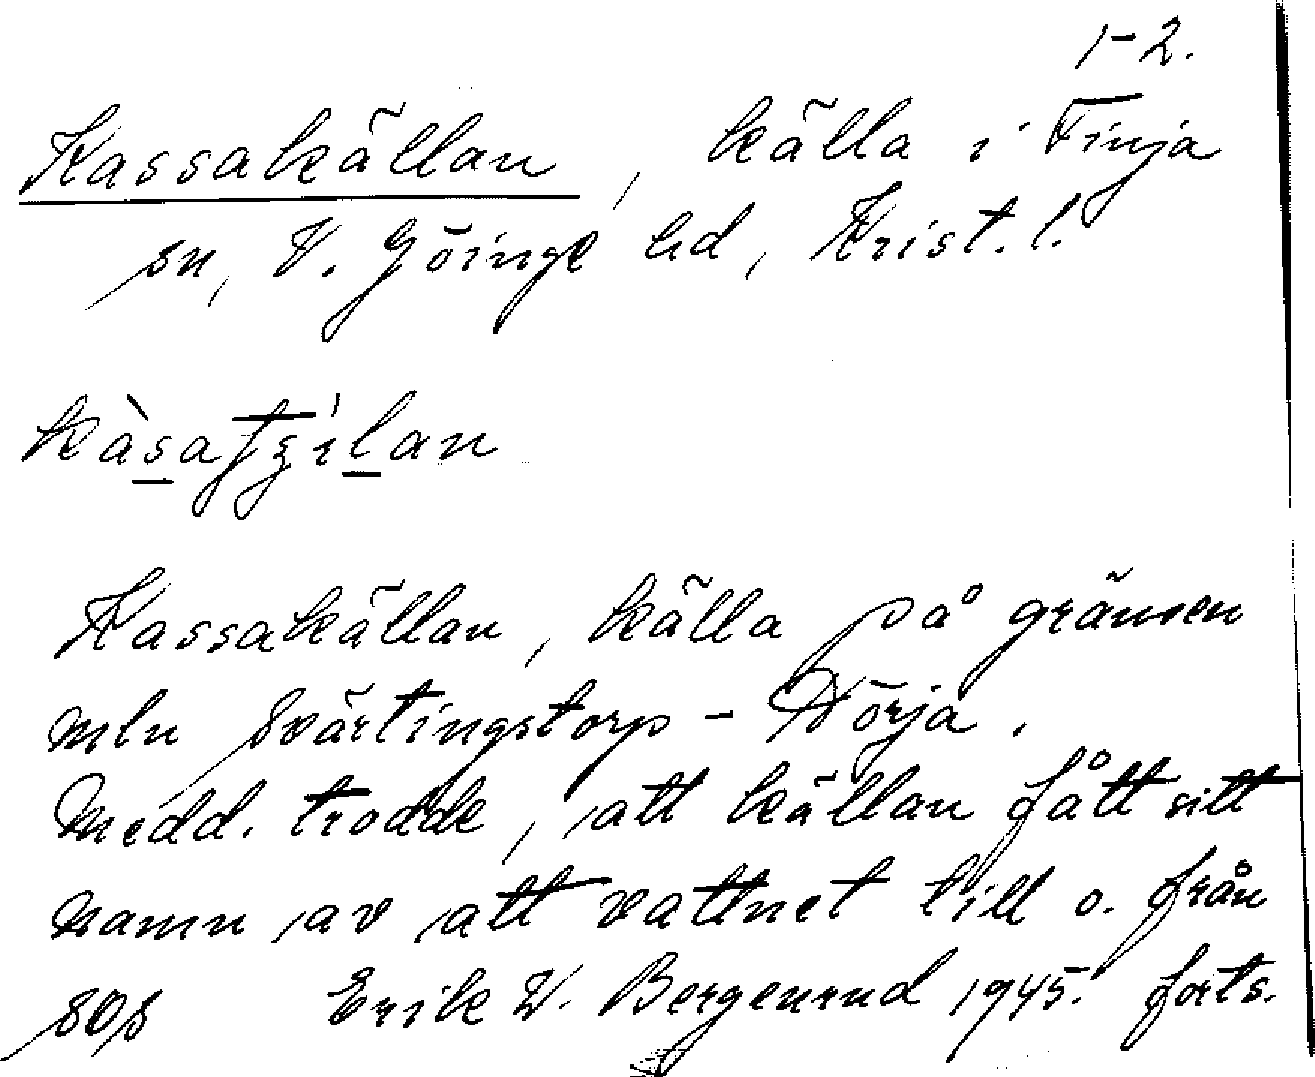 1-2.
Kassakällan, källa i Finja
sn, V. Göinge hd, Krist. l.
Kassakällan, källa på gränsen
mln Svärtingstorp - Nörja.
Medd. trodde, att källan fått sitt
namn av att vattnet till o. från
Erik W. Bergenrud 1945. forts.